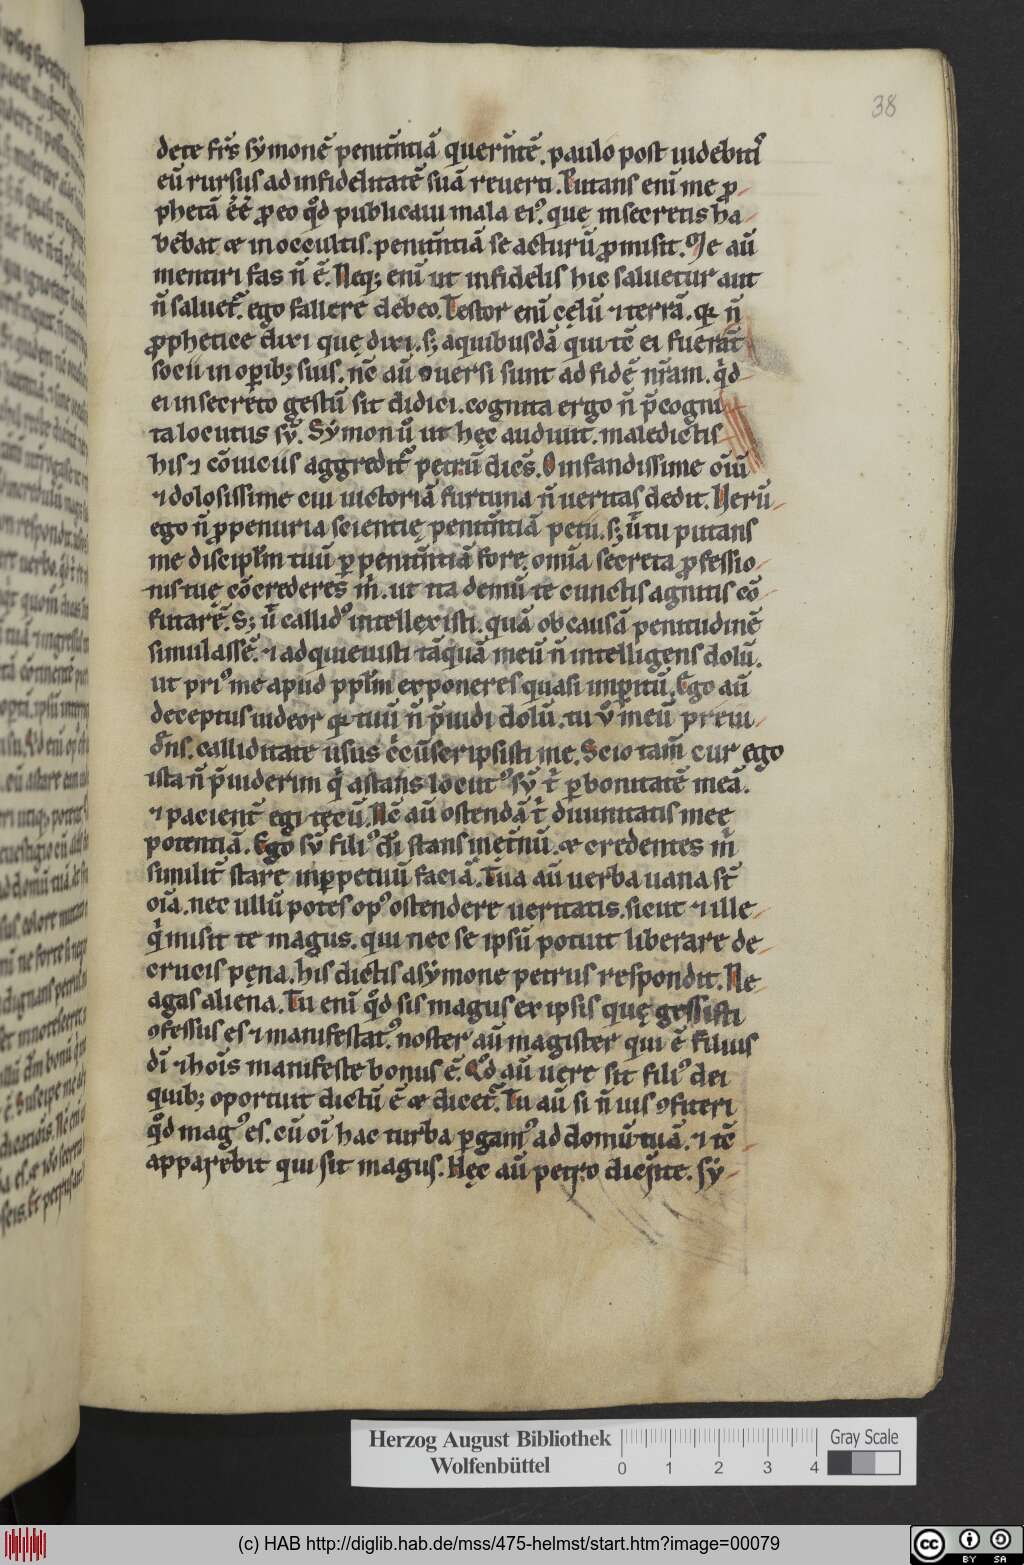 38
dete fr̄s sẏmonē penitn̄tiā quern̄tē. paulo post uidebitꝰ
eū rursus ad infidelitatē suā reuerti. Putans enī me ꝓ-
phetā ēē ꝓ eo qd̄ publicaui mala eiꝰ. quę in secretis ha-
bebat & in occultis. penitn̄tiā se acturū ꝓmisit. Me aū
mentiri fas n̄ ē. Neq; enī ut infidelis hic saluetur aut
n̄ saluet᷑ ego fallere debeo. Testor enī cęlū ⁊ terrā. qꝛ n̄
ꝓphetice dixi quę dixi. s; a quibusdā qui tē ei fuerāt
socii in oꝑib; suis. nē aū ꝯuersi sunt ad fidē nr̄am. qd̄
ei in secreto gestū sit didici. cognita ergo n̄ p̄cogni-
ta locutus sū. Sẏmon ū ut hęc audiuit. maledictis
his ⁊ cōuiciis aggredit᷑ petrū dicēs. O infandissime oīū
⁊ dolosissime cui uictoriā furtuna n̄ ueritas dedit. Uerū-
ego n̄ ꝓ penuria scientię penitn̄tiā petii. s; ut tu putans
me discipl̄m tuū ꝑ penitn̄tiā fore. omīa secreta ꝓfessio-
nis tuę cōcrederes m̄. ut ita demū te cunctis agnitis cō-
futarē. S; ū callidꝰ intellexisti. quā ob causā penitudinē
simulassē. ⁊ adquieuisti tāquā meū n̄ intelligens dolū.
ut priꝰ me apud ppl̄m exponeres quasi imꝑitū. Ego aū
deceptus uideor qꝛ tuū n̄ p̄uidi dolū. tu ū meū preui-
dēns. calliditate usus c̄cūscripsisti me. Scio tam̄ cur ego
ista n̄ p̄uiderim q̄ astans locutꝰ sū t̄ ꝑ bonitatē meā.
⁊ pacient̄ egi tęcū. Nc̄ aū ostendā t̄ diuinitatis meę
potentiā. Ego sū filiꝰ dī stans inęt̄nū. & credentes m̄
similit̄ stare in ꝑpetuū faciā. Tua aū uerba uana st̄
oīa. nec ullū potes opꝰ ostendere ueritatis. sicut ⁊ ille
q̄ misit te magus. qui nec se ipsū potuit liberare de
crucis pęna. his dictis a sẏmone petrus respondit. Ne
agas aliena. Tu enī qd̄ sis magus ex ipsis quę gessisti
ꝯfessus es ⁊ manifestatꝰ. noster aū magister qui ē filius
dī ⁊ hoīs manifeste bonus ē. Qd̄ aū uere sit filiꝰ dei
quib; oportuit dictū ē & dicet᷑. Tu aū si n̄ uis ꝯfiteri
qd̄ magꝰ es. cū oī hac turba ꝑgamꝰ ad domū tuā. ⁊ tē
apparebit qui sit magus. Hęc aū petro dicēte. sẏ-
Herzog August Bibliothek
Wolfenbüttel
0 1 2 3 4
Gray Scale
(c) HAB http://diglib.hab.de/mss/475-helmst/start.htm?image=00079
cc BY SA